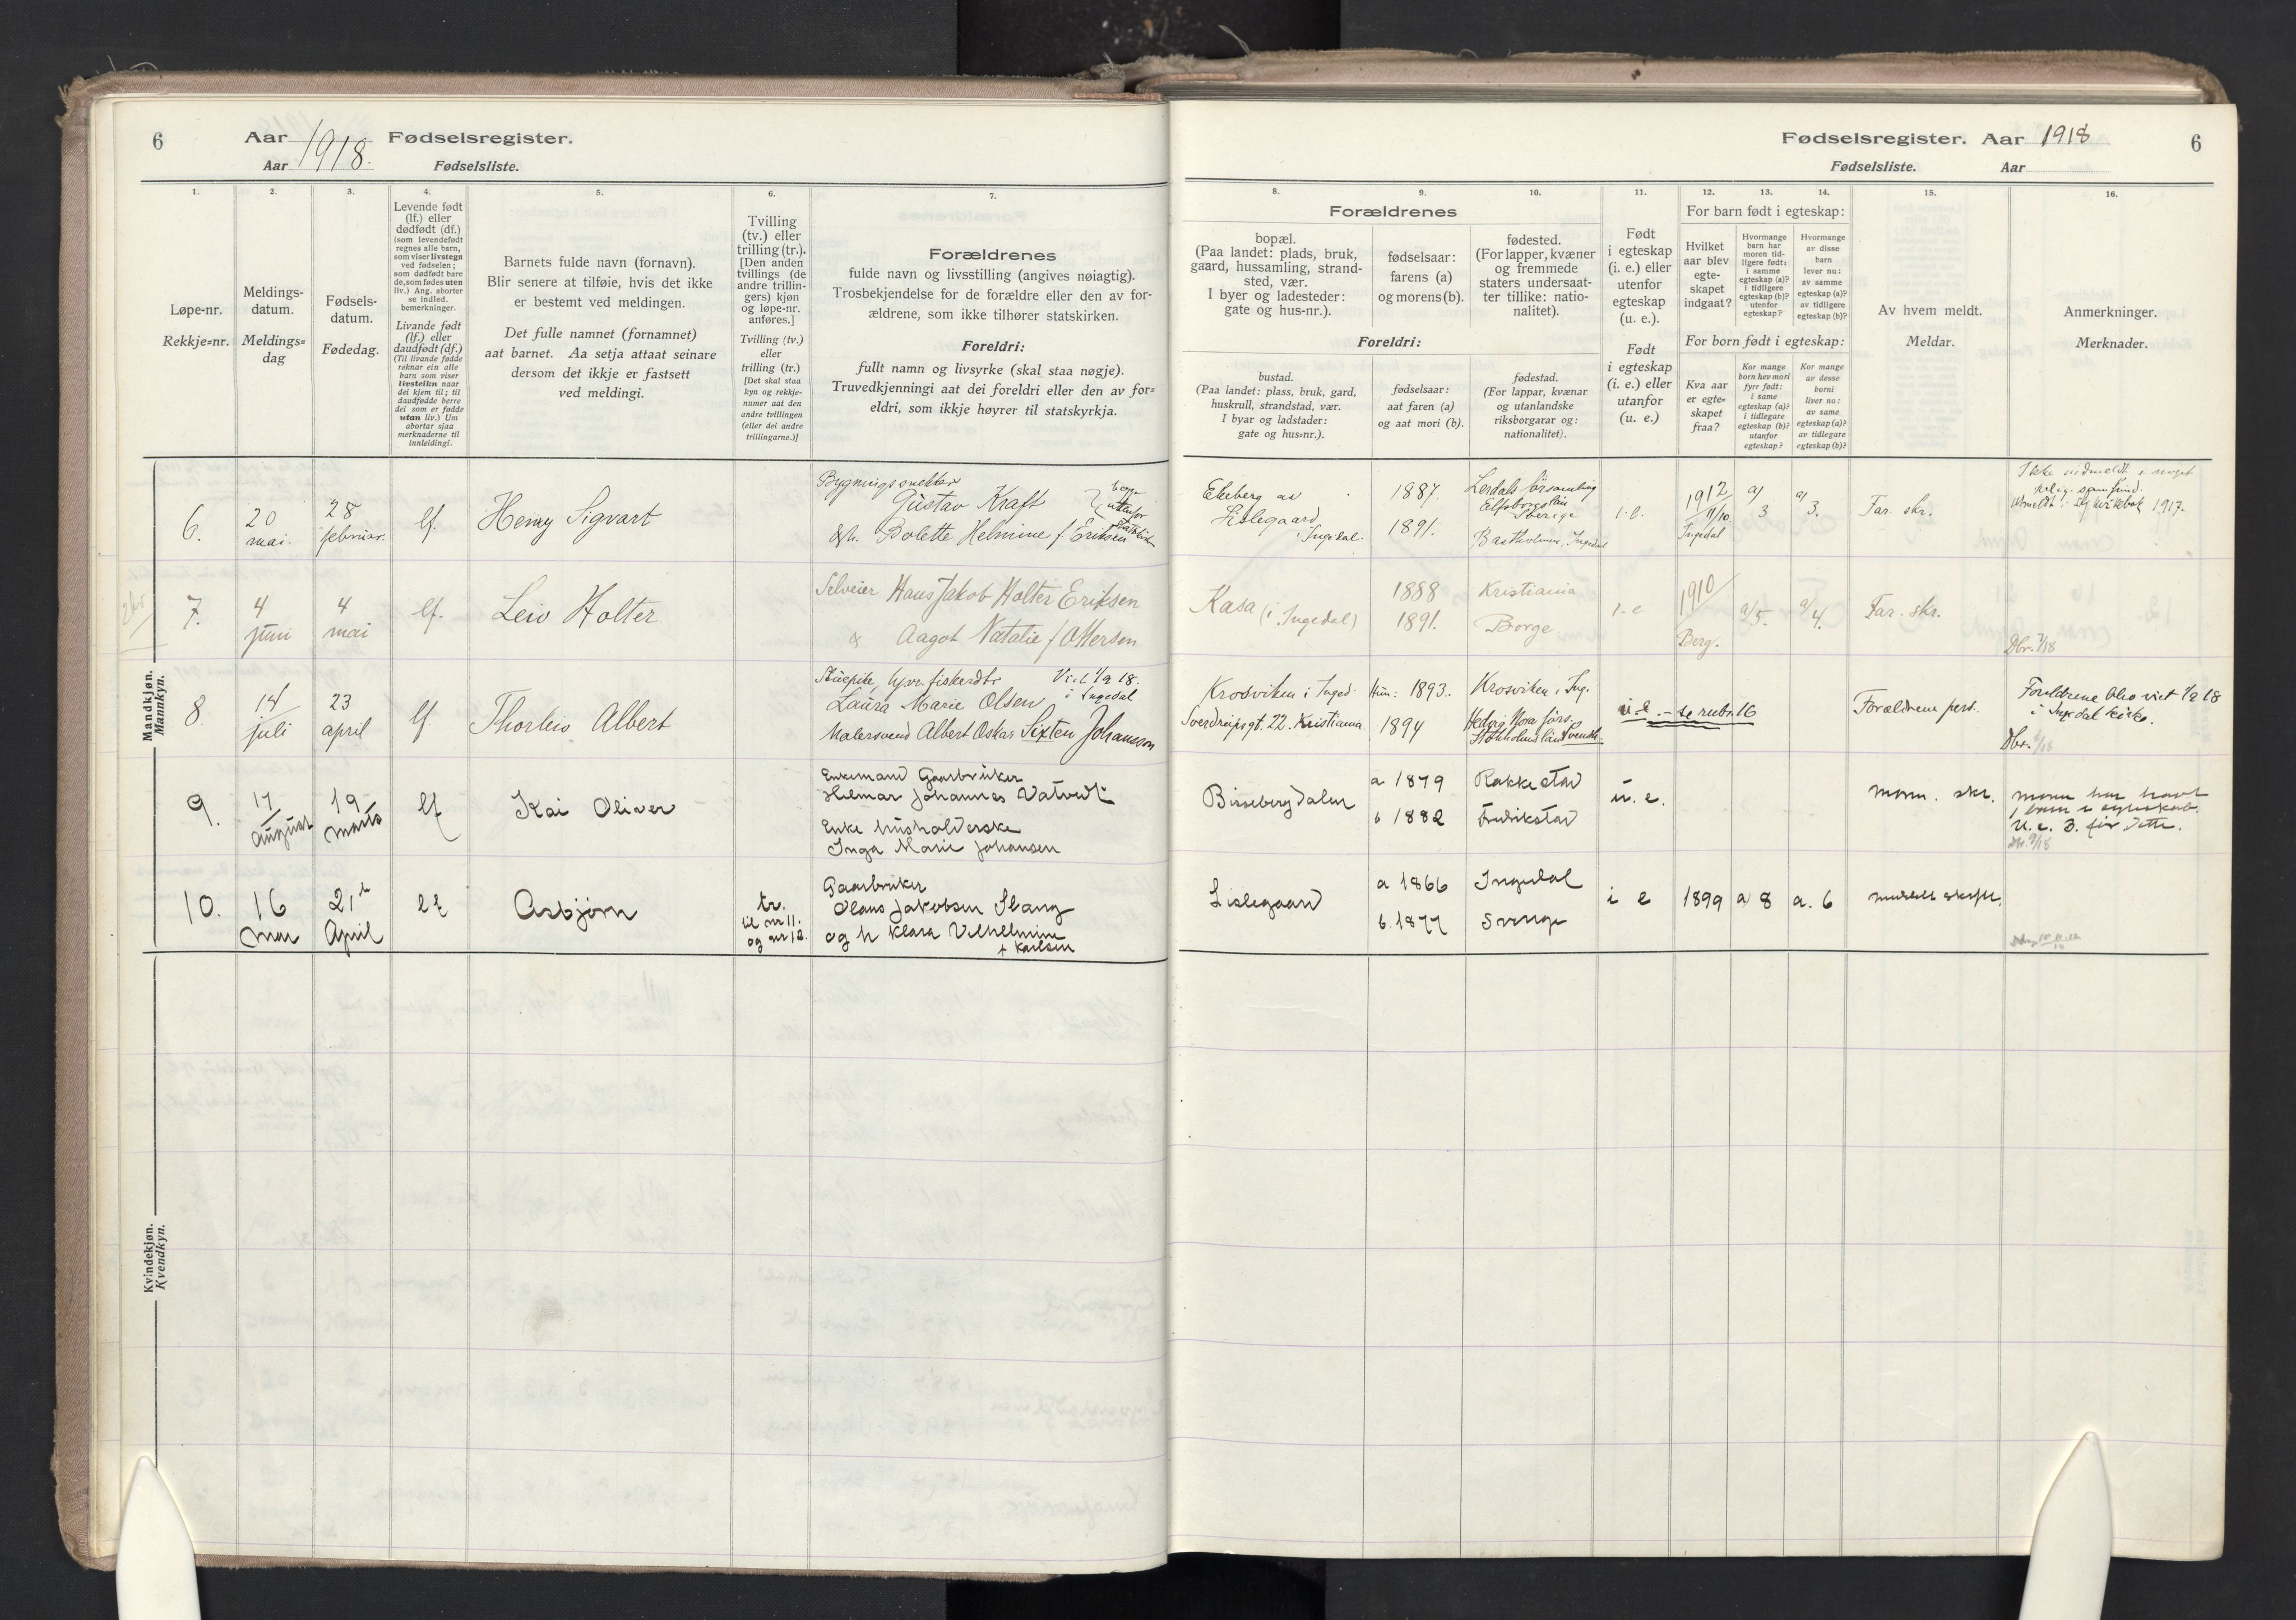 6
Aar 1918. Fødselsregister.
Aar Fødselsliste.
1. 2. 3. 4. 5. 6. 7.
Løpe-nr.
Rekkje=nr.
Meldings-
datum.
Meldings=
dag
Fødsels-
datum.
Fødedag.
Levende født
(lf.) eller
dødfødt (df.)
(som levendefødt
regnes alle barn,
som viser livstegn
ved fødselen;
som dødfødt bare
de, som fødes uten
liv.) Ang. aborter
se indled.
bemerkninger.
Livande født
(lf.) eller
daudfødt (df.)
(Til livande fødde
reknar ein alle
barn som viser
livsteikn naar
dei kjem til; til
daudfødde berre
dei som er fødde
utan liv.) Um
abortar sjaa
merknaderne til
innleidingi.
Barnets fulde navn (fornavn).
Blir senere at tilføie, hvis det ikke
er bestemt ved meldingen.
Det fulle namnet (fornamnet)
aat barnet. Aa setja attaat seinare
dersom det ikkje er fastsett
ved meldingi.
Tvilling
(tv.) eller
trilling (tr.).
[Den anden
tvillings (de
andre trillin-
gers) kjøn
og løpe-nr.
anføres.]
Tvilling (tv.)
eller
trilling (tr.)
[Det skal staa
kyn og rekkje-
numer aat den
andre tvillingen
(eller dei andre
trillingarne.)]
Forældrenes
fulde navn og livsstilling (angives nøiagtig).
Trosbekjendelse for de forældre eller den av for-
ældrene, som ikke tilhører statskirken.
Foreldri:
fullt namn og livsyrke (skal staa nøgje).
Truvedkjenningi aat dei foreldri eller den av for=
eldri, som ikkje høyrer til statskyrkja.
Mandkjøn.
Mannkyn.
6. 20 mai. 28 februar. lf. Henry Sigvart
Gustav Kraft
Bolette Helmine f. Eriksen
7. 4 juni 4 mai lf. Leiv Holter
Selveier Hans Jakob Holter Eriksen
& Aagot Natalie f. Ottersen
8. 14 juli 23 april lf Thorleiv Albert
i Ingedal
Laura Marie Olsen
Malersvend Albert Oskar Sixten Johansson
9. 17 august 19 marts lf Kai Oliver
Enkemand Gaarbruker
Hilmar Johannes Vatvedt
Enke husholderske
Inga Marie Johansen
10. 16 mai 21 April lf Asbjørn
tr.
til nr 11.
og nr 12.
Gaarbruker
Olaus Jakobsen Slang
og h Klara Vilhelmine
f Karlsen
Kvindekjøn.
Kvendkyn.
Fødselsregister. Aar 1918
6
Fødselsliste. Aar
8. 9. 10. 11. 12. 13. 14. 15. 16.
Forældrenes
bopæl.
(Paa landet: plads, bruk,
gaard, hussamling, strand-
sted, vær.
I byer og ladesteder:
gate og hus-nr.).
fødselsaar:
farens (a)
og morens (b).
fødested.
(For lapper, kvæner
og fremmede
staters undersaat-
ter tillike: natio-
nalitet).
Foreldri:
bustad.
(Paa landet: plass, bruk, gard,
huskrull, strandstad, vær.
I byar og ladstader:
gate og hus=nr.).
fødselsaar:
aat faren (a)
og aat mori (b).
fødestad.
(For lappar, kvænar
og utanlandske
riksborgarar og:
nationalitet).
Født
i egteskap
(i. e.) eller
utenfor
egteskap
(u. e.).
Født
i egteskap
(i. e.) eller
utanfor
(u. e.)
For barn født i egteskap:
Hvilket
aar blev
egte-
skapet
indgaat?
Hvormange
barn har
moren tid-
ligere født:
i samme
egteskap (a)?
i tidligere
egteskap (b)?
utenfor
egteskap?
Hvormange
av disse
barn
lever nu:
av samme
egteskap (a)?
av tidligere
egteskap (b)?
For born født i egteskap:
Kva aar
er egte=
skapet
fraa?
Kor mange
born hev mori
fyrr født:
i same
egteskap (a)?
i tidlegare
egteskap (b)?
utanfor
egteskap?
Kor mange
av desse
borni
liver no:
av same
egteskap (a)?
av tidlegare
egteskap (b)?
Av hvem meldt.
Meldar.
Anmerkninger.
Merknader.
Ekeberg av
Lislegaard
i Ingedal.
1887.
1891.
Sverige
i.e.
1912
11/10
Ingedal
a/ 3
a/ 3.
Far. skr.
1917.
Kasa (i Ingedal)
1888
1891.
Kristiania
Borge
i.e
1910
Berg.
a/5.
a/4.
Far. skr.
Krosviken i Inged.
Sverdrupsgt. 22. Kristiania
1893.
1894
Krosviken i Ing.
u.e. - se rubr. 16
Forældrene pers.
Forældrene blev viet 1/9 18
i Ingedal kirke.
Bisseberg dalen
a 1879
b 1882
Rakkestad
Fredrikstad
u. e.
moren. skr.
moren har havt
1 barn i egteskab.
U. e. 3. før dette.
Lislegaard
a 1866
b. 1877
Ingedal
Sverige
i e
1899
a/ 8
a. 6